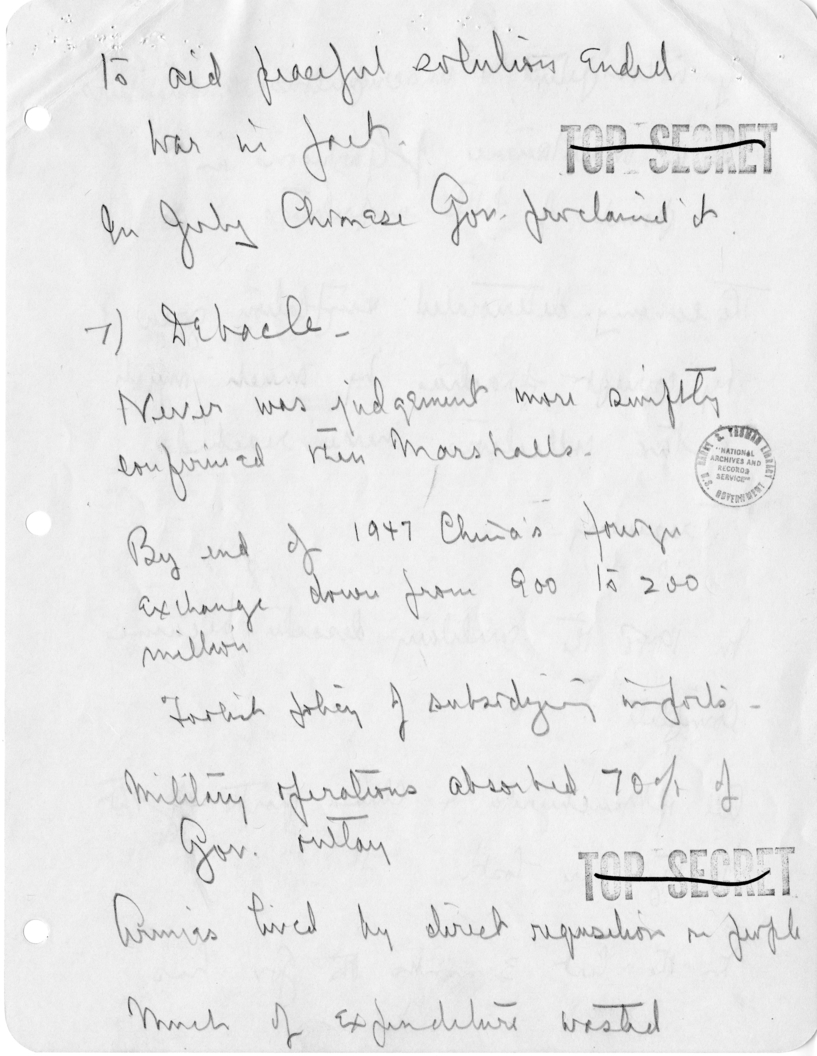 to aid peaceful solution ended
war in fact.
TOP SECRET
In July Chinese Gov. proclaimed it
7) Debacle -
Never was judgement more swiftly
confirmed than Marshalls.
HARRY S. TRUMAN LIBRARY
"NATIONAL
ARCHIVES AND
RECORDS
SERVICE"
U.S. GOVERNMENT
By end of 1947 China's foreign
exchange down from 900 to 200
million
Foolish policy of subsidizing imports -
Military operations absorbed 70% of
Gov. outlay
TOP SECRET
Armies lived by direct requisition on people
Much of expenditure wasted